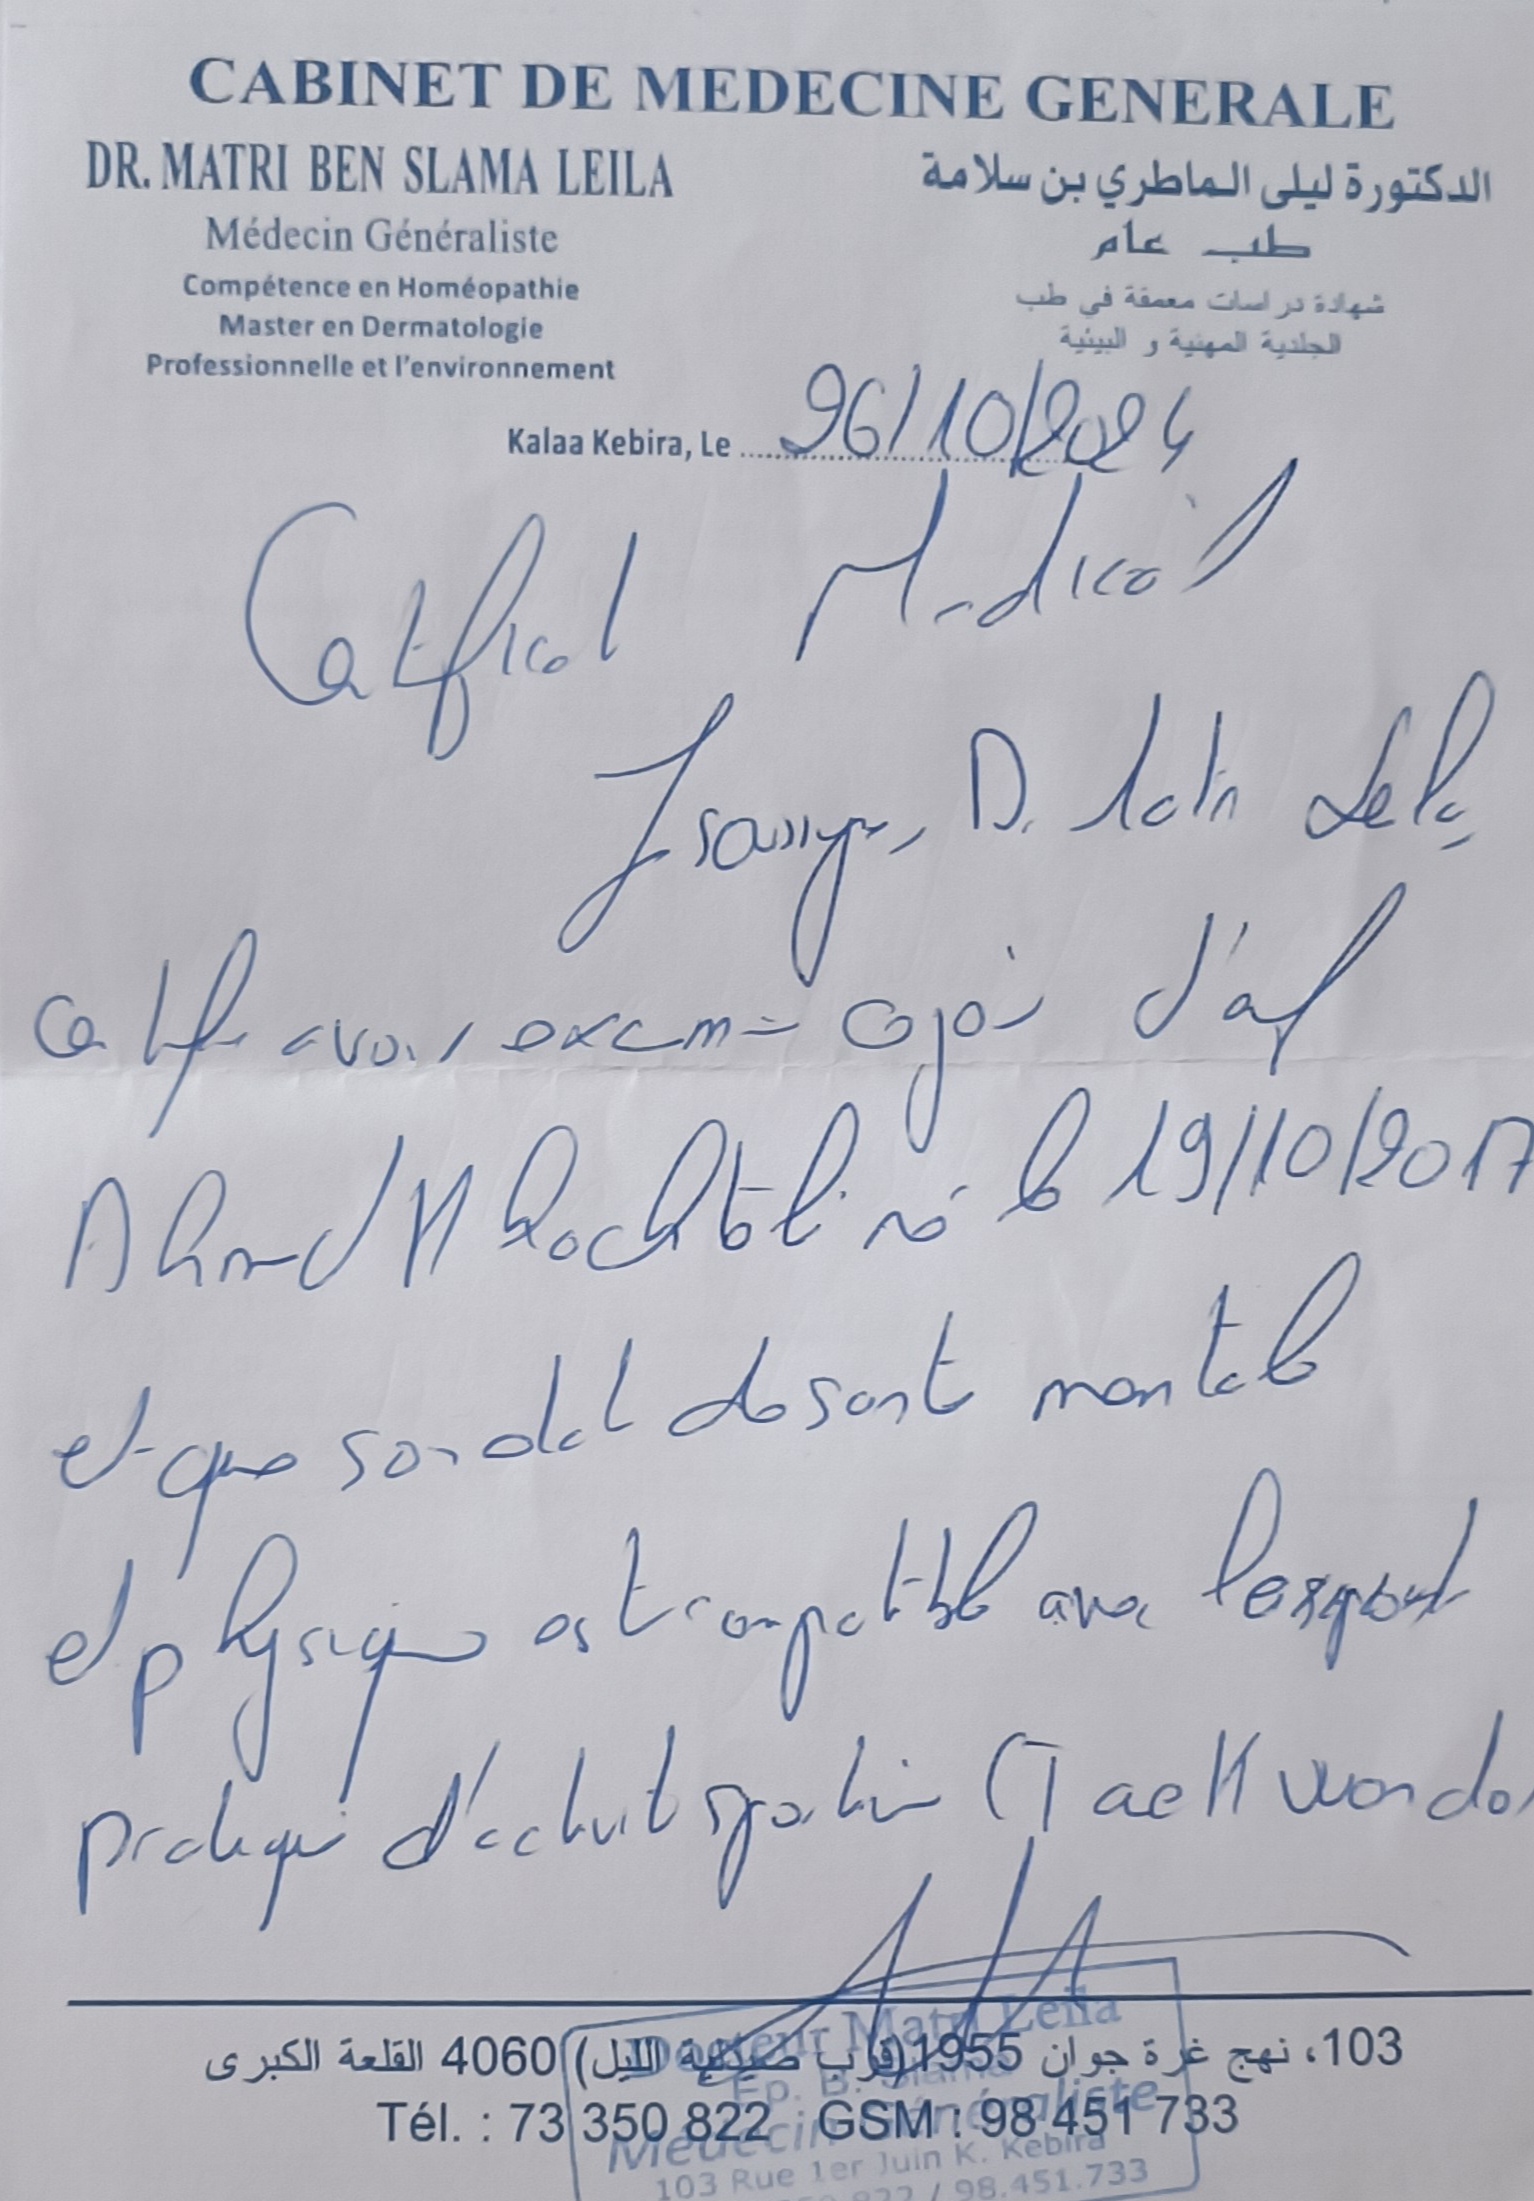 CABINET DE MEDECINE GENERALE
DR. MATRI BEN SLAMA LEILA
Médecin Généraliste
Compétence en Homéopathie
Master en Dermatologie
Professionnelle et l'environnement
الدكتورة ليلى الماطري بن سلامة
طب عام
شهادة دراسات معمقة في طب
الجلدية المهنية و البيئية
Kalaa Kebira, Le 26/10/2024
Certificat Médical
Je soussigné, Dr Matri Leila
certifie avoir examiné ce jour l'enf
Ahmed Khochtali né le 19/10/2017
et que son état de santé mentale
et physique est compatible avec
pratique d'activité sportive (Taekwondo)
103، نهج غرة جوان 1955 (قرب صيدلية الليل) 4060 القلعة الكبرى
Tél. : 73 350 822 GSM : 98 451 733
Docteur Matri Leila
Ep. B. Slama
Médecin Généraliste
103 Rue 1er Juin K. Kebira
822 / 98.451.733